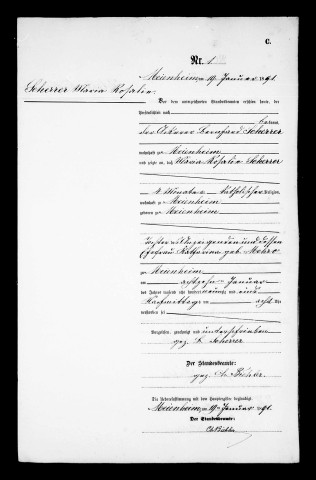 C.
Nr. 1
Meienheim am 19. Januar 1891
Scherrer Maria Rosalia
Vor dem unterzeichneten Standesbeamten erschien heute, der
Persönlichkeit nach
kannt,
der Ackerer Bernhard Scherrer
wohnhaft zu Meienheim
und zeigte an, daß Maria Rosalia Scherrer
katholischer Religion,
wohnhaft zu Meienheim
geboren zu Meienheim
Tochter des Anzeigenden und dessen
Ehefrau Katharina geb.
zu
Meienheim
am achtzehn Januar
des Jahres tausend acht hundert neunzig und eins
Nachmittags um acht Uhr
verstorben sei.
Vorgelesen, genehmigt und unterschrieben
gez. B. Scherrer
Der Standesbeamte:
gez.
Die Uebereinstimmung mit dem Hauptregister beglaubigt
Meienheim, am 19. Januar 1891.
Der Standesbeamte: